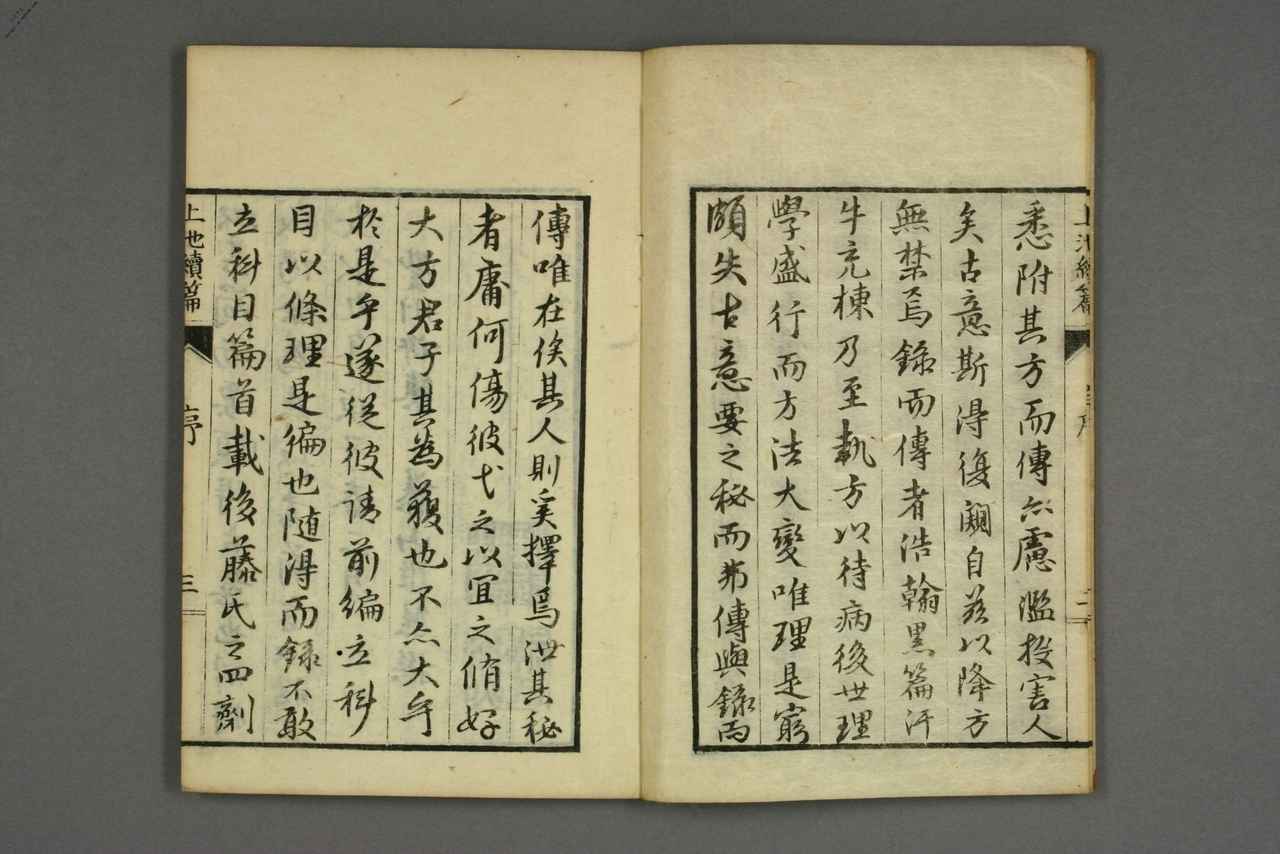 上池續篇
序
二
悉附其方而傳亦慮濫投害人
矣古意斯得復闕自茲以降方
無禁焉錄而傳者浩翰黑篇汗
牛充棟乃至執方以待病後世理
學盛行而方法大變唯理是窮
頗失古意要之秘而弗傳與錄而
傳唯在俟其人則奚擇焉泄其秘
者庸何傷彼弋之以冝之脩好
大方君子其為蔽也不亦大乎
於是乎遂從彼請前編立科
目以條理是編也随得而錄不敢
立科目篇首載後藤氏之四劑
上池續篇
序
三